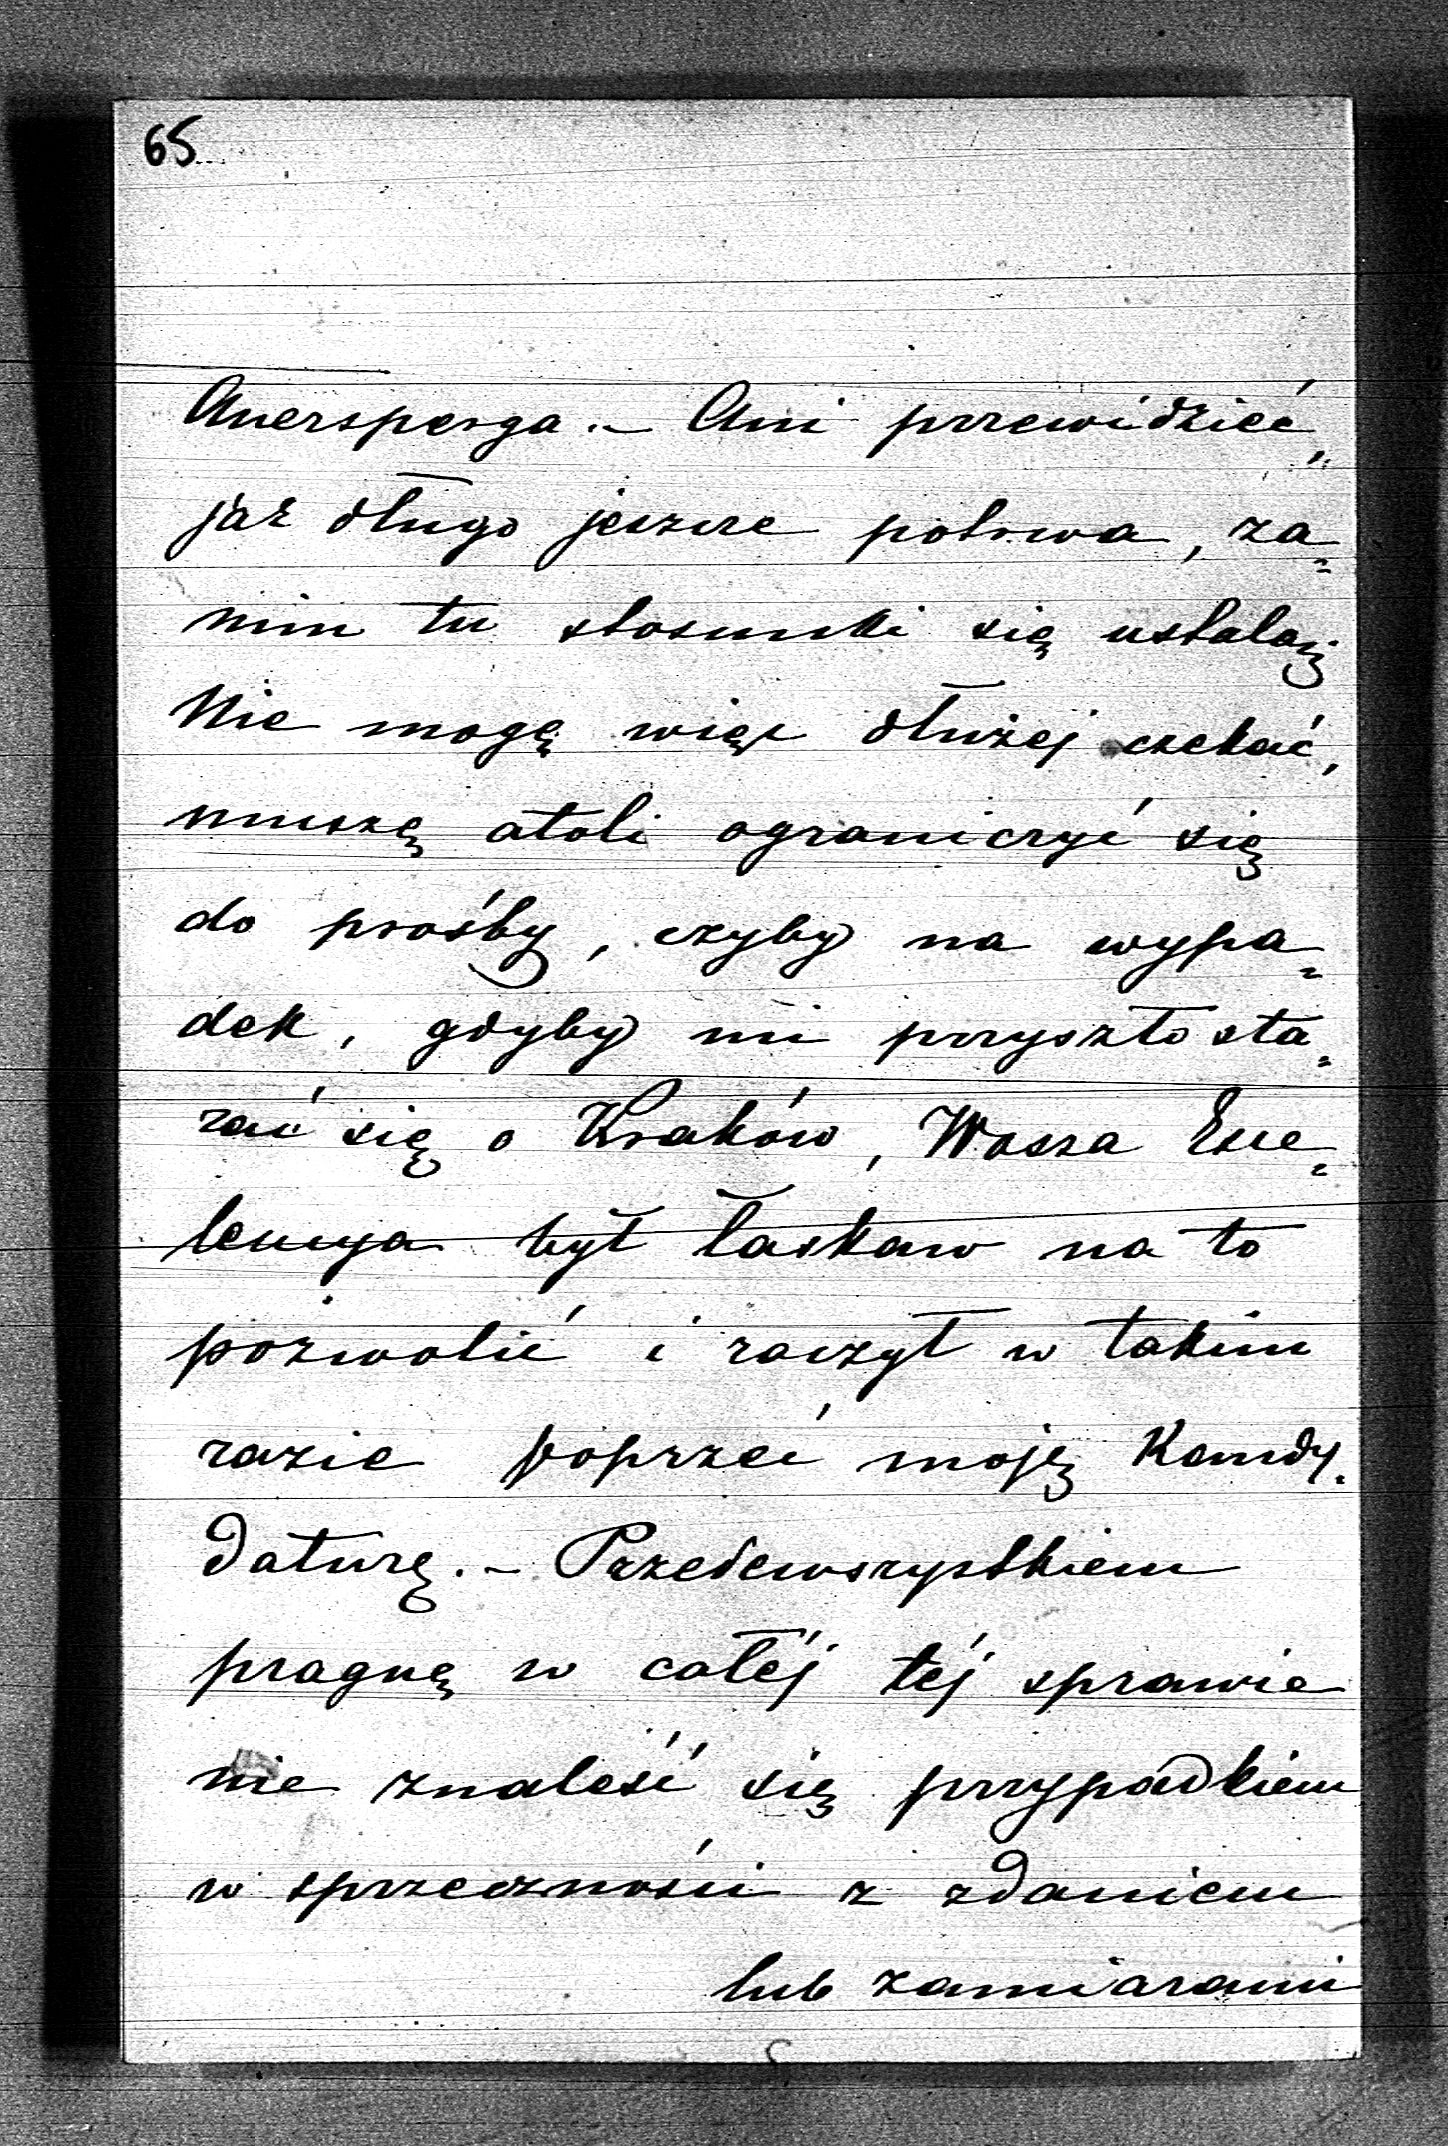 65
Auersperga. – Ani przewidzieć,
jak długo jeszcze potrwa, za=
nim tu stosunki się ustalą.
Nie mogę więc dłużej czekać,
muszę atoli ograniczyć się
do prośby, czyby na wypa=
dek, gdyby mi przyszło sta=
rać się o Kraków, Wasza Exce=
lencya był łaskaw na to
pozwolić i raczył w takim
razie poprzeć moję Kandy=
daturę. – Przedewszystkiem
pragnę w całéj téj sprawie
nie znaleść się przypadkiem
w sprzeczności z zdaniem
lub zamiarami